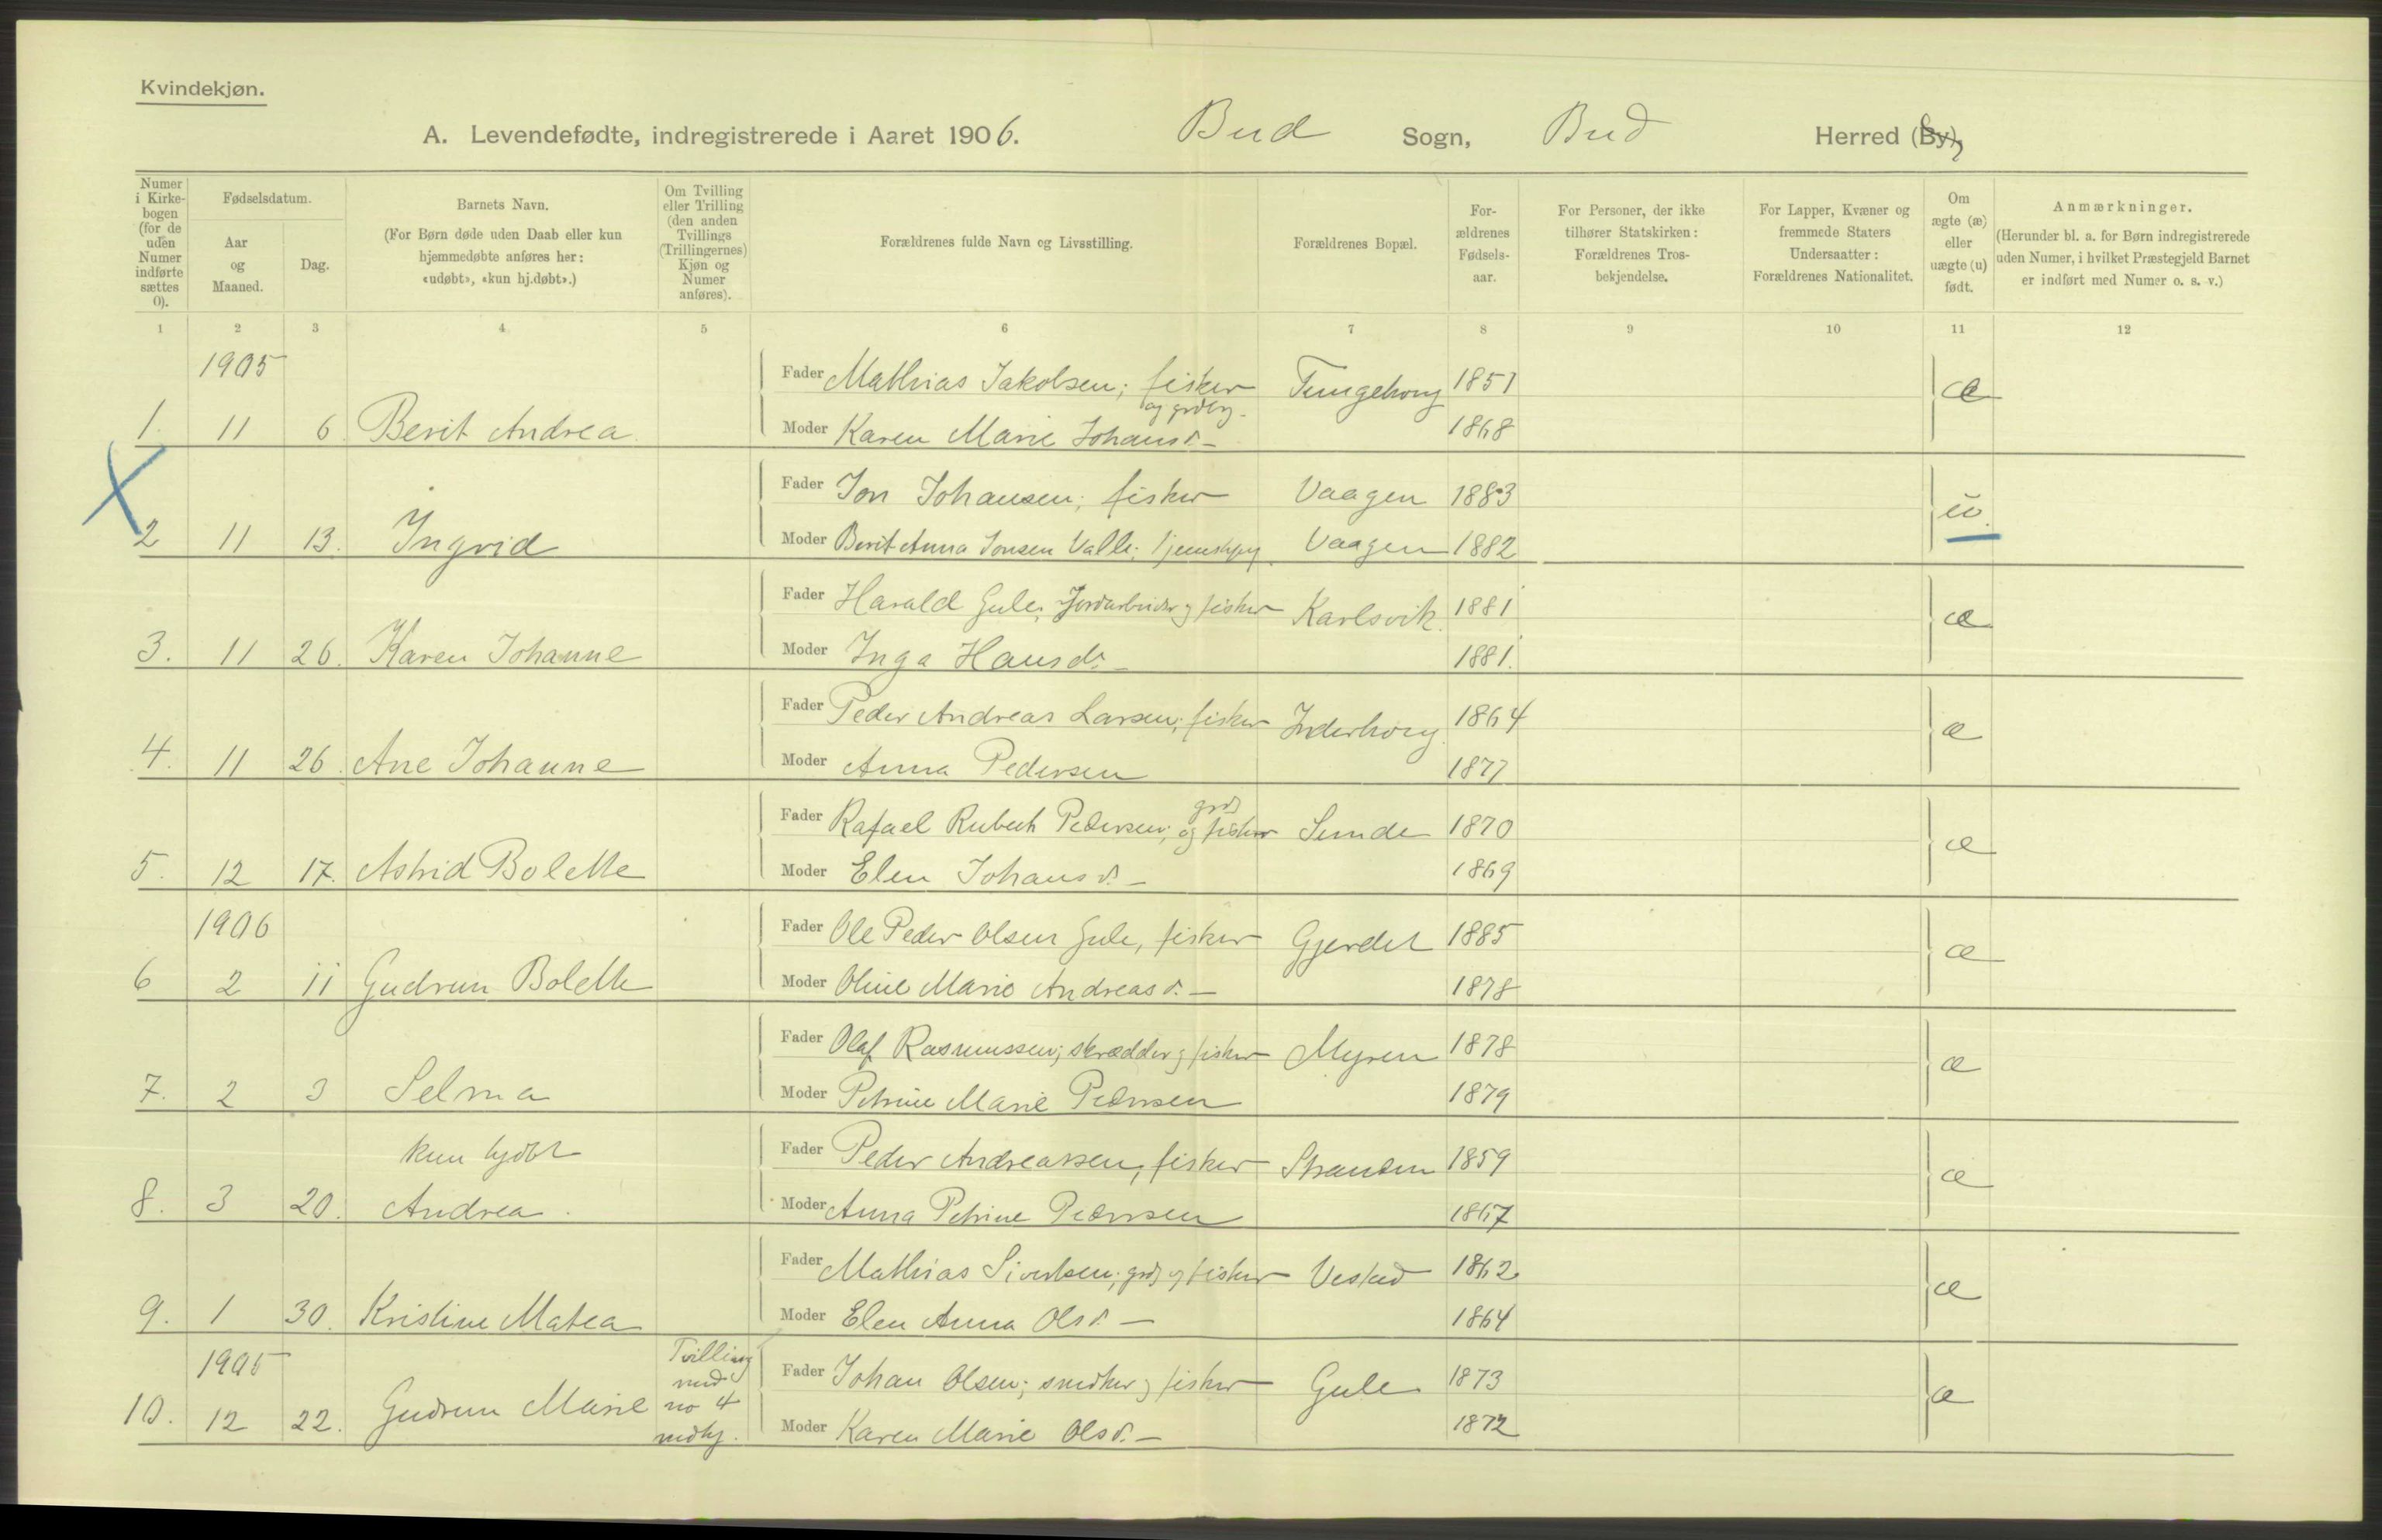 Kvindekjøn.
A. Levendefødte, indregistrerede i Aaret 1906. Bud Sogn, Bud Herred (By),
Numer i Kirkebogen (for de uden Numer indførte sættes 0).
Fødselsdatum.
Aar og Maaned.
Dag.
Barnets Navn.
(For Børn døde uden Daab eller kun hjemmedøbte anføres her: «udøbt», «kun hj.døbt».)
Om Tvilling eller Trilling (den anden Tvillings (Trillingernes) Kjøn og Numer anføres).
Forældrenes fulde Navn og Livsstilling.
Forældrenes Bopæl.
Forældrenes Fødselsaar.
For Personer, der ikke tilhører Statskirken: Forældrenes Trosbekjendelse.
For Lapper, Kvæner og fremmede Staters Undersaatter: Forældrenes Nationalitet.
Om ægte (æ) eller uægte (u) født.
Anmærkninger.
(Herunder bl. a. for Børn indregistrerede uden Numer, i hvilket Præstegjeld Barnet er indført med Numer o. s. v.)
1 2 3 4 5 6 7 8 9 10 11 12
1905 Fader Mathias Jakobsen; fisker Tungehong 1851 æ
og grdbr.
1. 11 6 Berit Andrea Moder Karen Marie Johansd. 1868
Fader Jon Johansen; fisker Vaagen 1883 u.
2 11 13. Ingrid Moder Berit Anna Jonsen Valle; Vaagen 1882
Fader Harald Gule; Jordarbeider og fisker Karlsvik 1881 æ
3. 11 26. Karen Johanne Moder Inga Hansd. 1881.
Fader Peder Andreas Larsen; fisker Inderhong 1864 æ
4. 11 26. Ane Johanne Moder Anna Pedersen 1877
Fader Rafael Pedersen; grdb og fisker Sunde 1870 æ
5. 12 17. Astrid Bolette Moder Elen Johansd. 1869
1906 Fader Ole Peder Olsen Gule, fisker Gjerdet 1885 æ
6 2 11 Gudrun Bolette Moder Oline Marie Andreasd. 1878
Fader Olaf Rasmussen; skrædder og fisker Myren 1878 æ
7. 2 3 Selma Moder Petrine Marie Pedersen 1879
kun hjdbt Fader Peder Andreassen, fisker Stranden 1859 æ
8. 3 20. Andrea. Moder Anna Petrine Pedersen 1867
Fader Mathias Sivertsen; grdb og fisker Vestad 1862 æ
9. 1 30. Kristine Matea Moder Elen Anna Olsd. 1864
1905 Tvilling med no 4 mdkj. Fader Johan Olsen; snedker og fisker Gule 1873 æ
10. 12 22. Gudrun Marie Moder Karen Marie Olsd. 1872